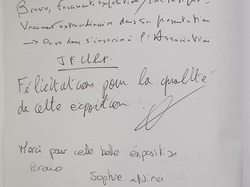 Bravo,
Vraiment extraordinaire dans sa présentation
→ On va s'inscrire à l'Association
Félicitations pour la qualité
de cette exposition
Merci pour cette belle éxposition
Bravo
Sophie